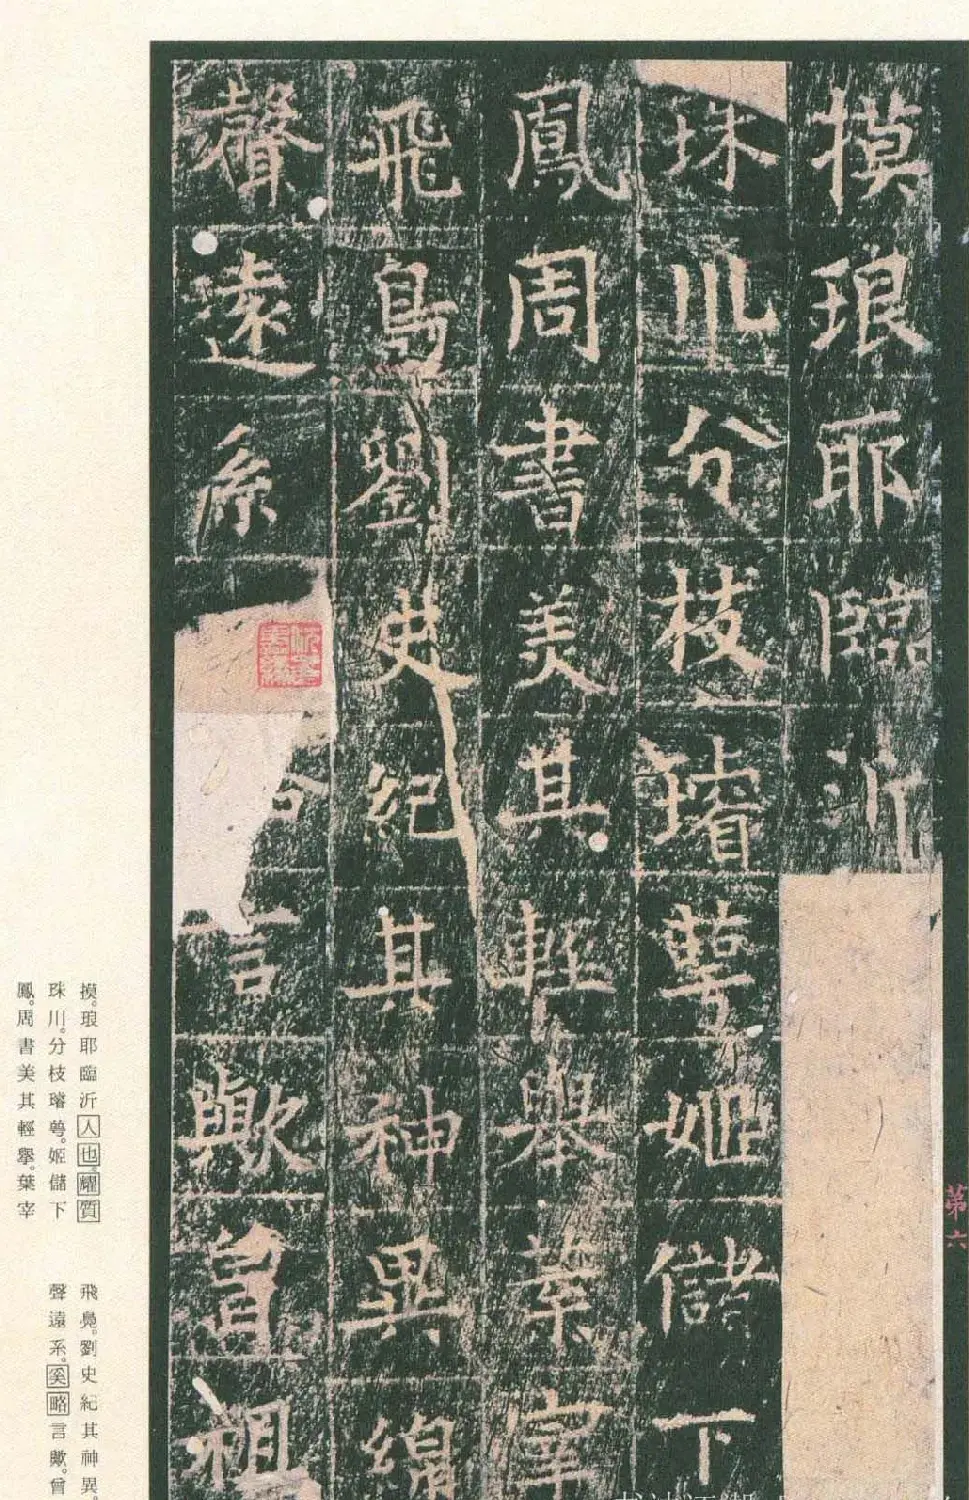 摸琅耶臨沂
珠川分枝璿萼姬儲下
鳳周書美其輕舉葉宰
飛鳧劉史紀其神異緝
聲遠系
言歟曾祖
第六
摸。琅耶臨沂人也。耀質
珠川。分枝璿萼。姬儲下
鳳。周書美其輕擧。葉宰
飛鳧。劉史紀其神異。
聲遠系。奚略言歟。曾